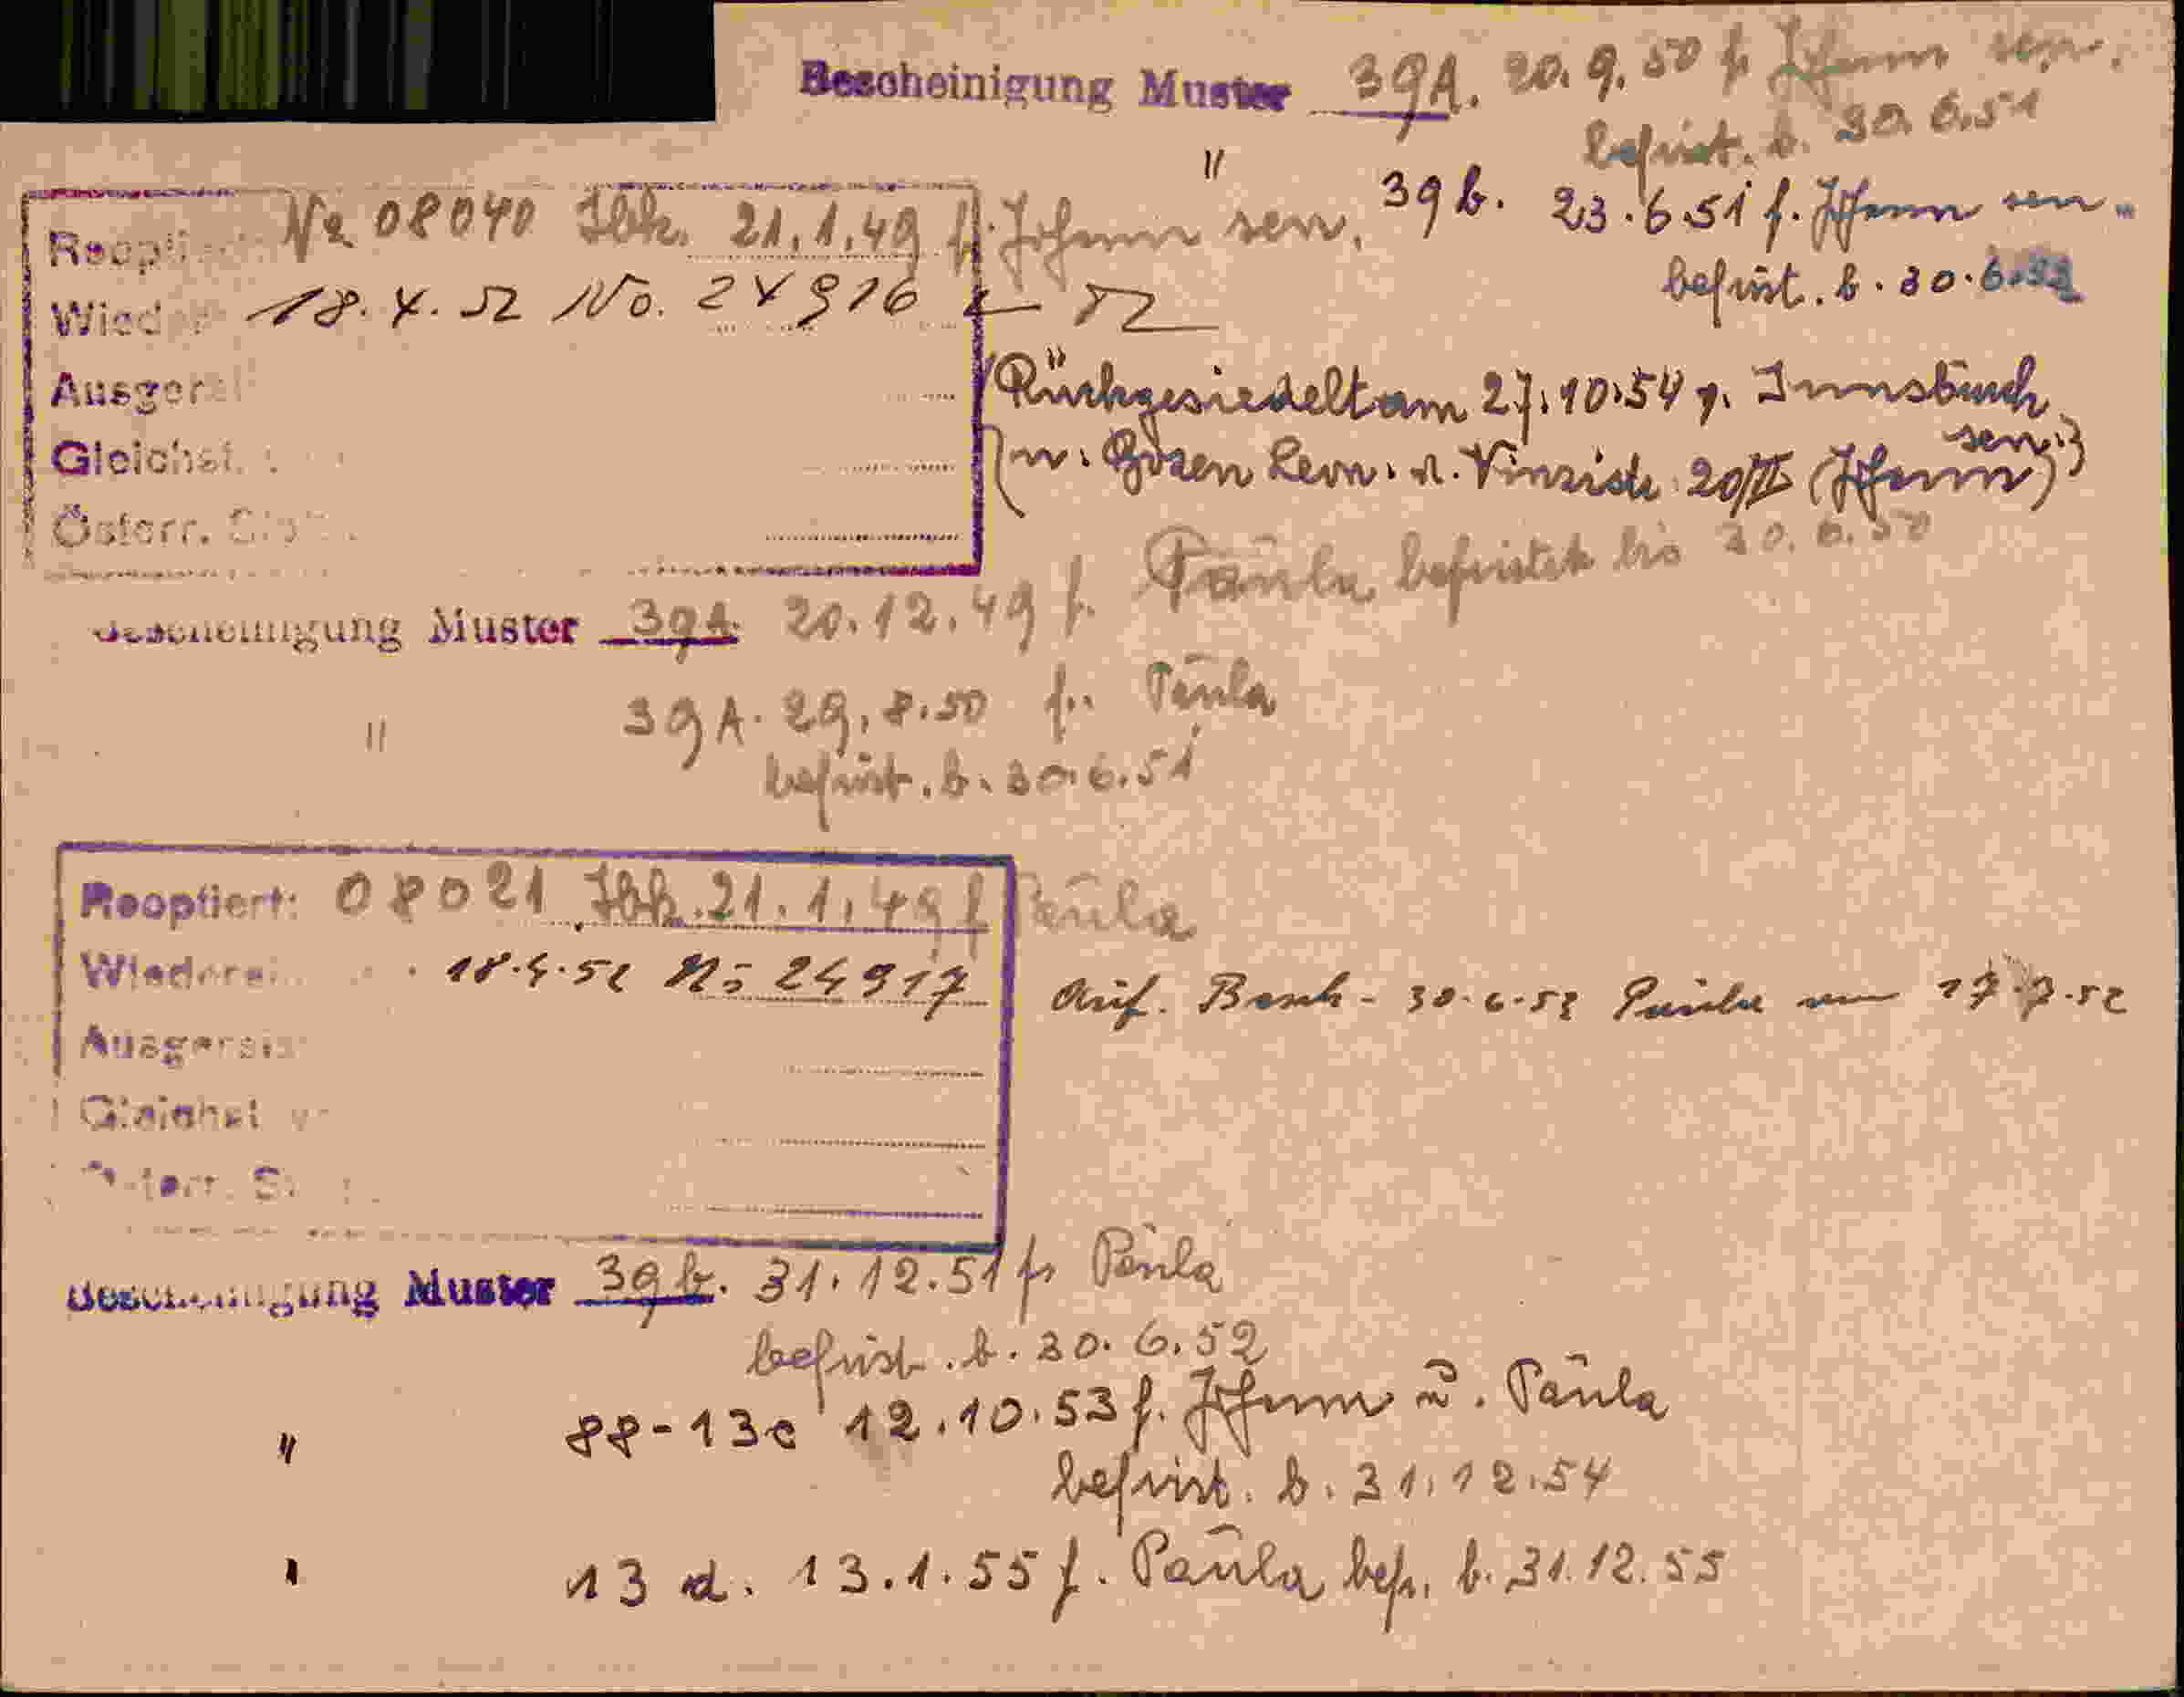 Bescheinigung Muster 39A. 20.9.50 f. Johann sen.
befrist. b. 30.6.51
" 39b. 23.6.51 f. Johann sen.
befrist. b. 30.6.52
Reoptiert: No 08040 Ibk. 21.1.49 f. Johann sen.
Wieder 18.4.52 No. 24916
Ausger
Rückgesiedelt am 27.10.54 v. Innsbruck
Gleichst.
n. Bozen Leon. d. Vinzistr. 20/II (Johann sen.)
Österr. St
Bescheinigung Muster 39A 20.12.49 f. Paula befristet bis 30.6.50
" 39A. 29.8.50 f. Paula
befrist. b. 30.6.51
Reoptiert: 08021 Ibk. 21.1.49 f Paula
Wieder 18.4.52 No 24917 Auf. Besch - 30.6.53 Paula vom 17.7.52
Ausger
Gleichst
Österr. St
Bescheinigung Muster 39b. 31.12.51 f. Paula
befrist. b. 30.6.52
" 88-13c 12.10.53 f. Johann u. Paula
befrist. b. 31.12.54
" 13 d. 13.1.55 f. Paula bef. b. 31.12.55